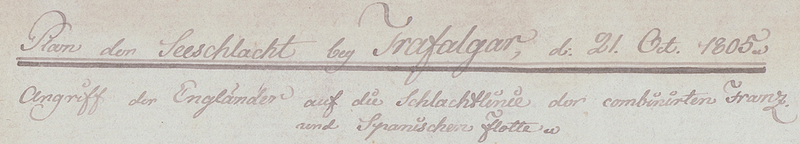 Plan der Seeschlacht bey Trafalgar, d. 21. Oct. 1805.
Angriff der Engländer auf die Schlachtlinie der combinirten Franz.
und Spanischen Flotte